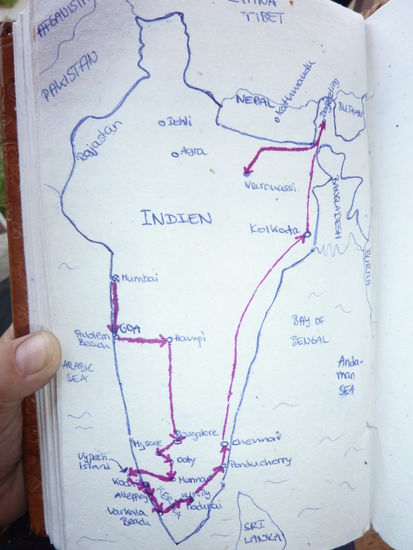 AFGANISTAN
CHINA
TIBET
PAKISTAN
NEPAL
Kathmandu
BUTHAN
Rajastan
Dehli
Agra
Varanassi
BANGLADESH
INDIEN
Kolkata
BURMA
Mumbai
GOA
Palolem
Beach
Hampi
BAY OF
BENGAL
ARABIC
SEA
Anda-
man
SEA
Mysore
Bangalore
Chennai
Ooty
Vypeen
Island
Munnar
Ponducherry
Kochi
Alleppey
Madurai
Varkala
Beach
SRI
LANKA